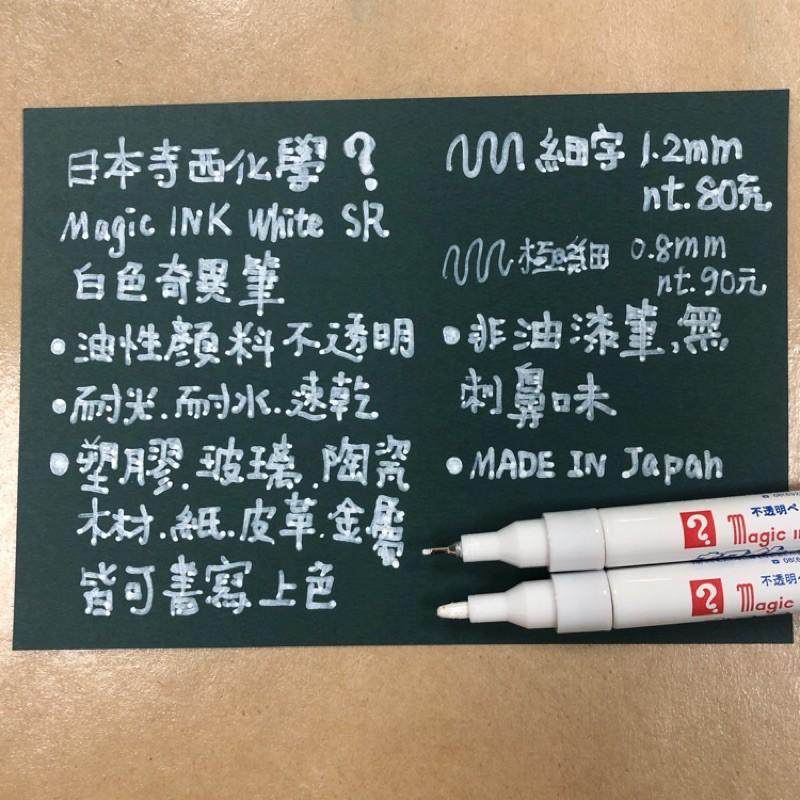 日本寺西化學?
Magic INK White SR
白色奇異筆
•油性顏料不透明
•耐光.耐水.速乾
•塑膠.玻璃.陶瓷
木材.紙.皮革.金屬
皆可畫寫上色
細字 1.2mm
nt.80元
極細 0.8mm
nt.90元
•非油漆筆,無
刺鼻味
•MADE IN Japan
不透明ペ
? Magic
不透明
? Magic